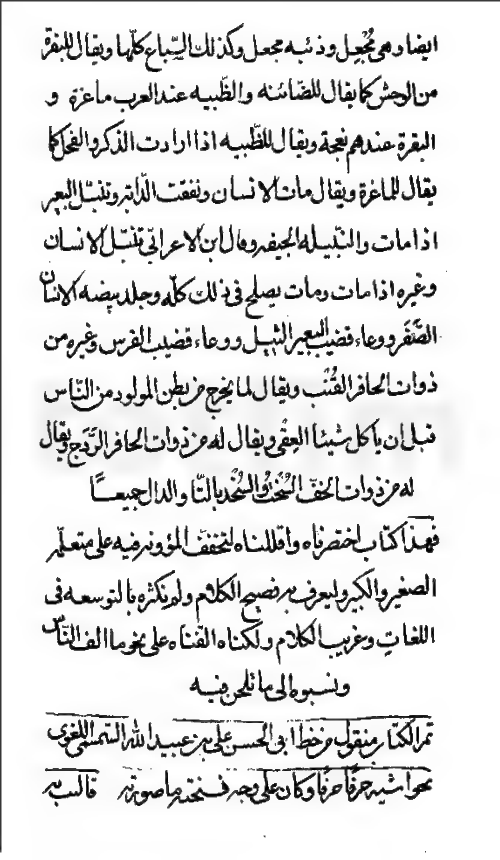 ايضا وهى مُجْعِل وذئبه مجعل وكذلك السّباع كلّها ويقال للبقرة
من الوحش كما يقال للضائنه والظّبيه عند العرب ماعزة و
البقرة عندهم نعجة ويقال للظّبيه اذا ارادت الذكر والفحل كما
يقال للماعزة ويقال مات الانسان ونفقت الدّابّه وتنبّل البعير
اذا مات والنّبيله الجيفه وقال ابن الاعرابّى تنبّل الانسان
وغيره اذا مات ومات يصلح فى ذلك كلّه وجلد بيضه الانسان
الصَّفَن ووعاء قضيب البعير الثيل ووعاء قضيب الفرس وغيره من
ذوات الحافر القُنْب ويقال لما يخرج من بطن المولود من النّاس
قبل ان ياكل شيئا العِقْى ويقال له من ذوات الحافر الرّدَج ويقال
له من ذوات الخفّ السُّخْت والسُّخْد بالتّا والدال جميعًا
فهذا كتاب اختصرناه واقللناه لتخفف المؤونه فيه على متعلّمه
الصغير والكبير وليعرف به فصيح الكلام ولم نكثره بالتوسعه فى
اللغات وغريب الكلام ولكناه الّفناه على نحو ما الف النّاس
ونسبوه الى ما تلحن فيه
تم الكتاب منقول من خط ابى الحسن على بن عبيد الله السّمسمى اللغوى
بحواشيه حرفًا حرفًا وكان على وجه نسخته ما صورته